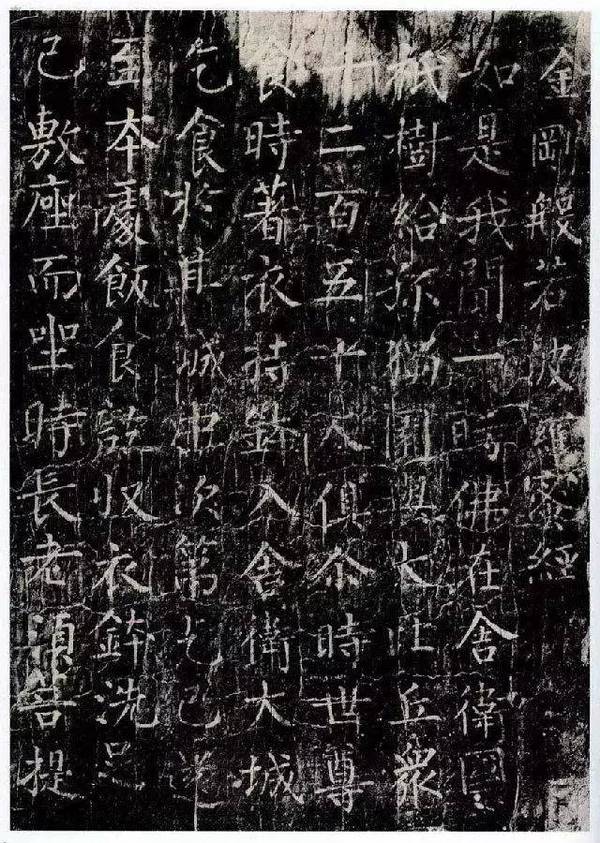 金剛般若波羅蜜經
如是我聞一時佛在舍衛國
祇樹給孤獨園與大比丘衆
千二百五十人俱尒時世尊
食時著衣持鉢入舍衛大城
乞食於其城中次第乞已還
至本處飯食訖収衣鉢洗足
已敷座而坐時長老須菩提